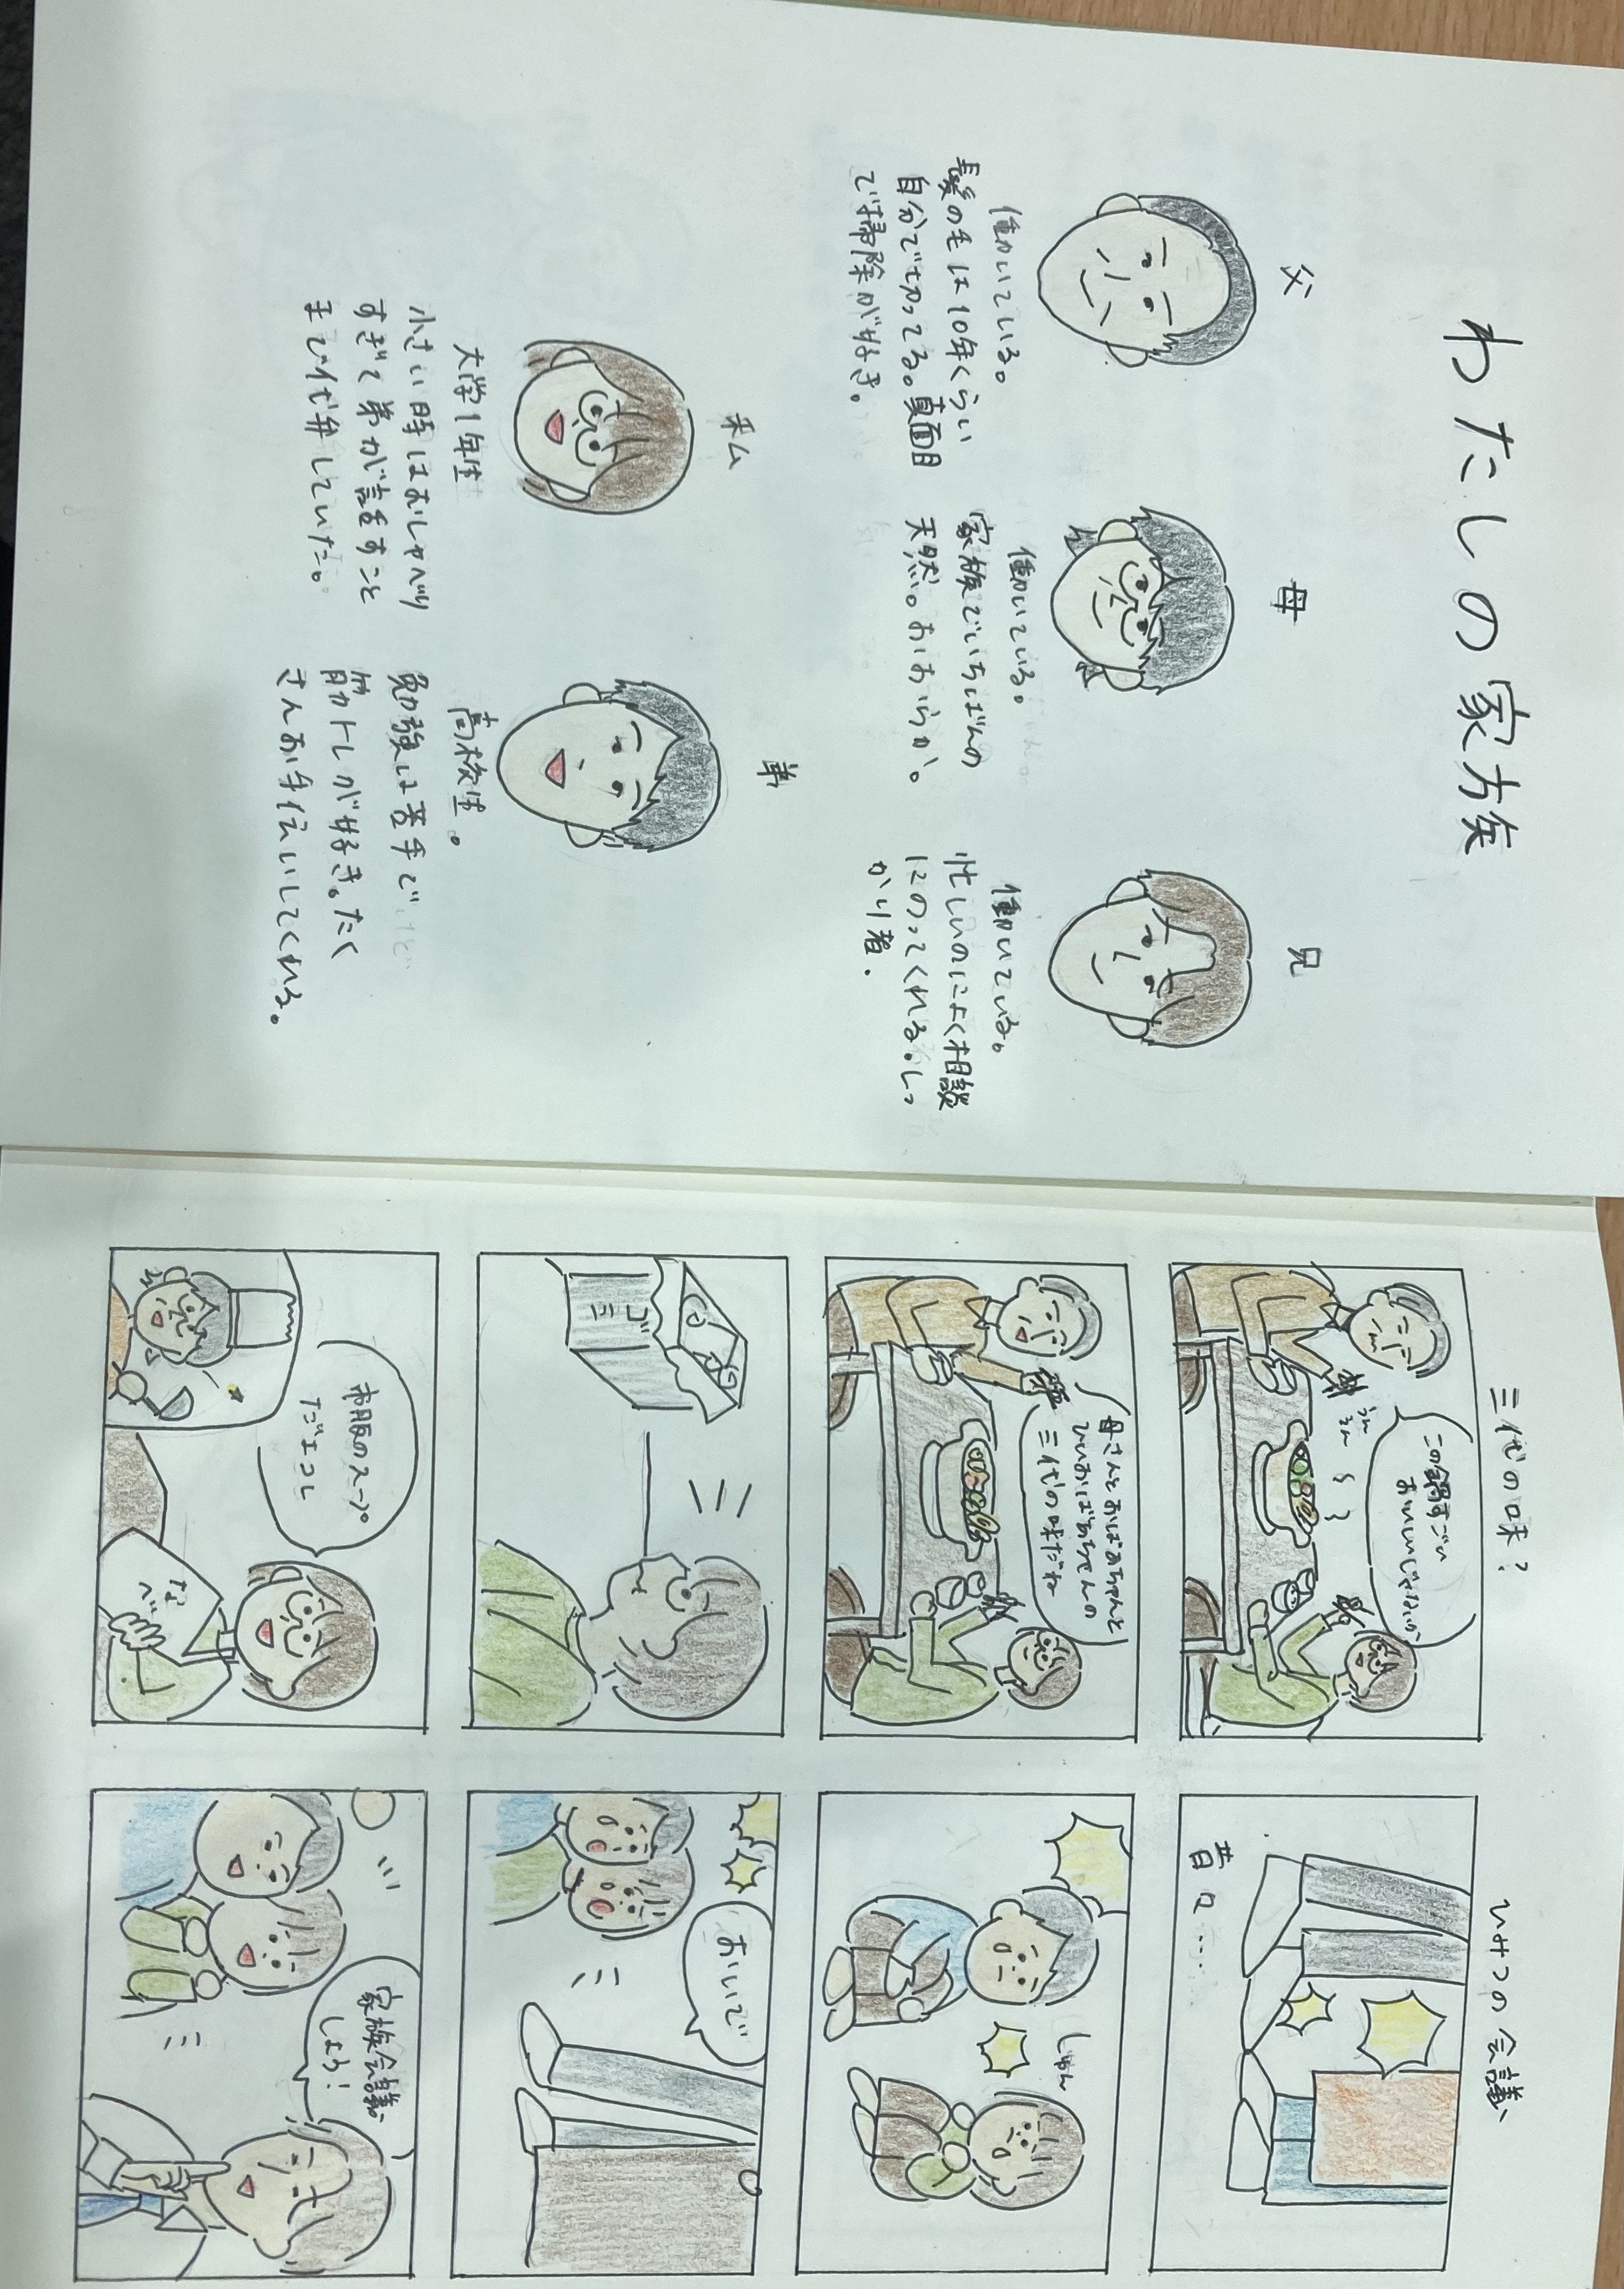 わたしの家族
父
働いている。
髪の毛は10年くらい
自分で切ってる。真面目
で掃除が好き。
母
働いている。
家族でいちばんの
天然。おおらか。
兄
働いている。
忙しいのによく相談
にのってくれる。しっ
かり者.
私
大学1年生
小さい時はおしゃべり
すぎて弟が話すこと
まで代弁していた。
弟
高校生。
勉強は苦手で
筋トレが好き。たく
さんお手伝いしてくれる。
三代の味?
この鍋すごい
おいしいじゃないか
うん
うん
母さんとおばあちゃんと
ひいおばあちゃんの
三代の味だね
ゴミ
なべ
市販のスープ
だよコレ
ひみつの会議
昔日…
しゅん
おいで
家族会議
しよう!